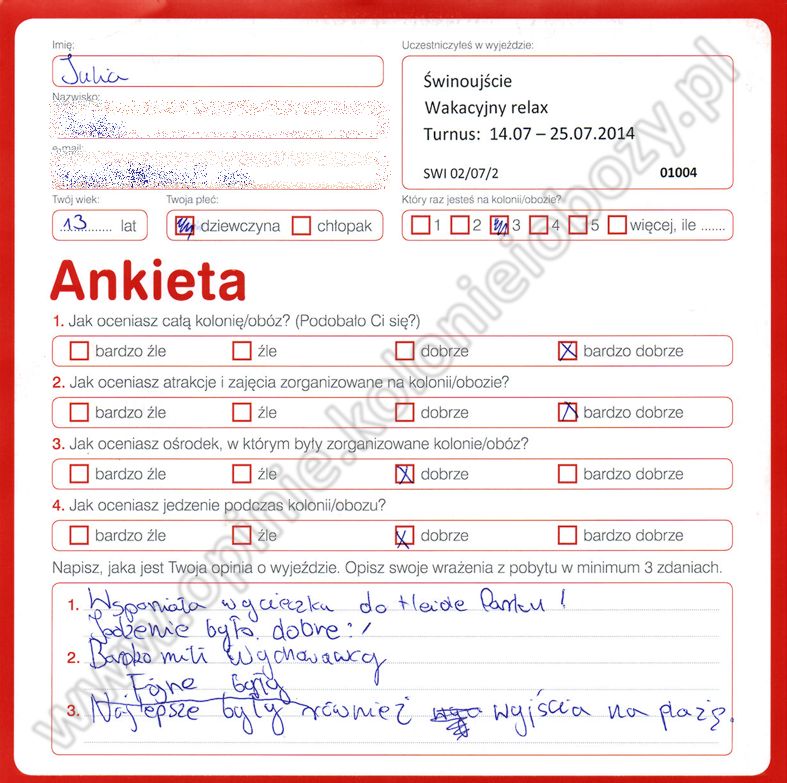 Imię:
Uczestniczyłeś w wyjeździe:
Julia
Świnoujście
Wakacyjny relax
Turnus: 14.07 – 25.07.2014
SWI 02/07/2 01004
Nazwisko:
e-mail:
Twój wiek: Twoja płeć: Który raz jesteś na kolonii/obozie?
13 lat dziewczyna chłopak 1 2 3 4 5 więcej, ile .......
Ankieta
1. Jak oceniasz całą kolonię/obóz? (Podobało Ci się?)
bardzo źle źle dobrze bardzo dobrze
2. Jak oceniasz atrakcje i zajęcia zorganizowane na kolonii/obozie?
bardzo źle źle dobrze bardzo dobrze
3. Jak oceniasz ośrodek, w którym były zorganizowane kolonie/obóz?
bardzo źle źle dobrze bardzo dobrze
4. Jak oceniasz jedzenie podczas kolonii/obozu?
bardzo źle źle dobrze bardzo dobrze
Napisz, jaka jest Twoja opinia o wyjeździe. Opisz swoje wrażenia z pobytu w minimum 3 zdaniach.
1. Wspaniała wycieczka do Heide Parku!
Jedzenie było dobre!
2. Bardzo mili wychowawcy
Fajne były
3. Najlepsze były również wyjścia na plażę.
www.opinie.kolonieiobozy.pl